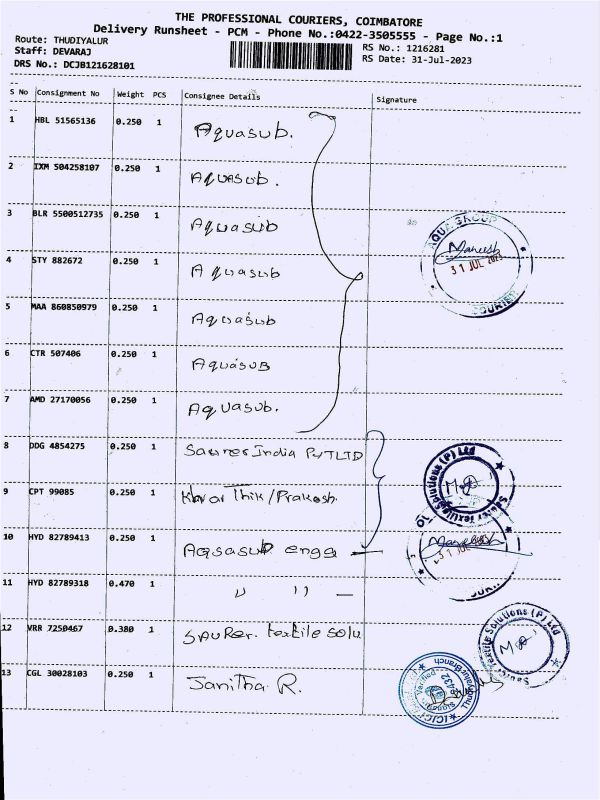 THE PROFESSIONAL COURIERS, COIMBATORE
Delivery Runsheet - PCM - Phone No.:0422-3505555 - Page No.:1
Route: THUDIYALUR
Staff: DEVARAJ
DRS No.: DCJB121628101
RS No.: 1216281
RS Date: 31-Jul-2023
S No Consignment No Weight PCS Consignee Details Signature
1 HBL 51565136 0.250 1 Aquasub.
2 IXM 504258107 0.250 1 Aquasub.
3 BLR 5500512735 0.250 1 Aquasub
4 STY 882672 0.250 1 Aquasub
5 MAA 860850979 0.250 1 Aquasub
6 CTR 507406 0.250 1 Aquasub
7 AMD 27170056 0.250 1 Aquasub.
AQUA GROUP
31 JUL 2023
COURIER
8 DDG 4854275 0.250 1 Saurer India PVT LTD
9 CPT 99085 0.250 1 /Prakash.
Saurer Textile Solutions (P) Ltd
10 HYD 82789413 0.250 1 Aqsasub engg —
31 JUL
11 HYD 82789318 0.470 1 " " —
12 VRR 7250467 0.380 1 SAURer. textile solu
Saurer Textile Solutions (P) Ltd
13 CGL 30028103 0.250 1 Janitha R.
ICICI
Thudiyalur Branch
Verified